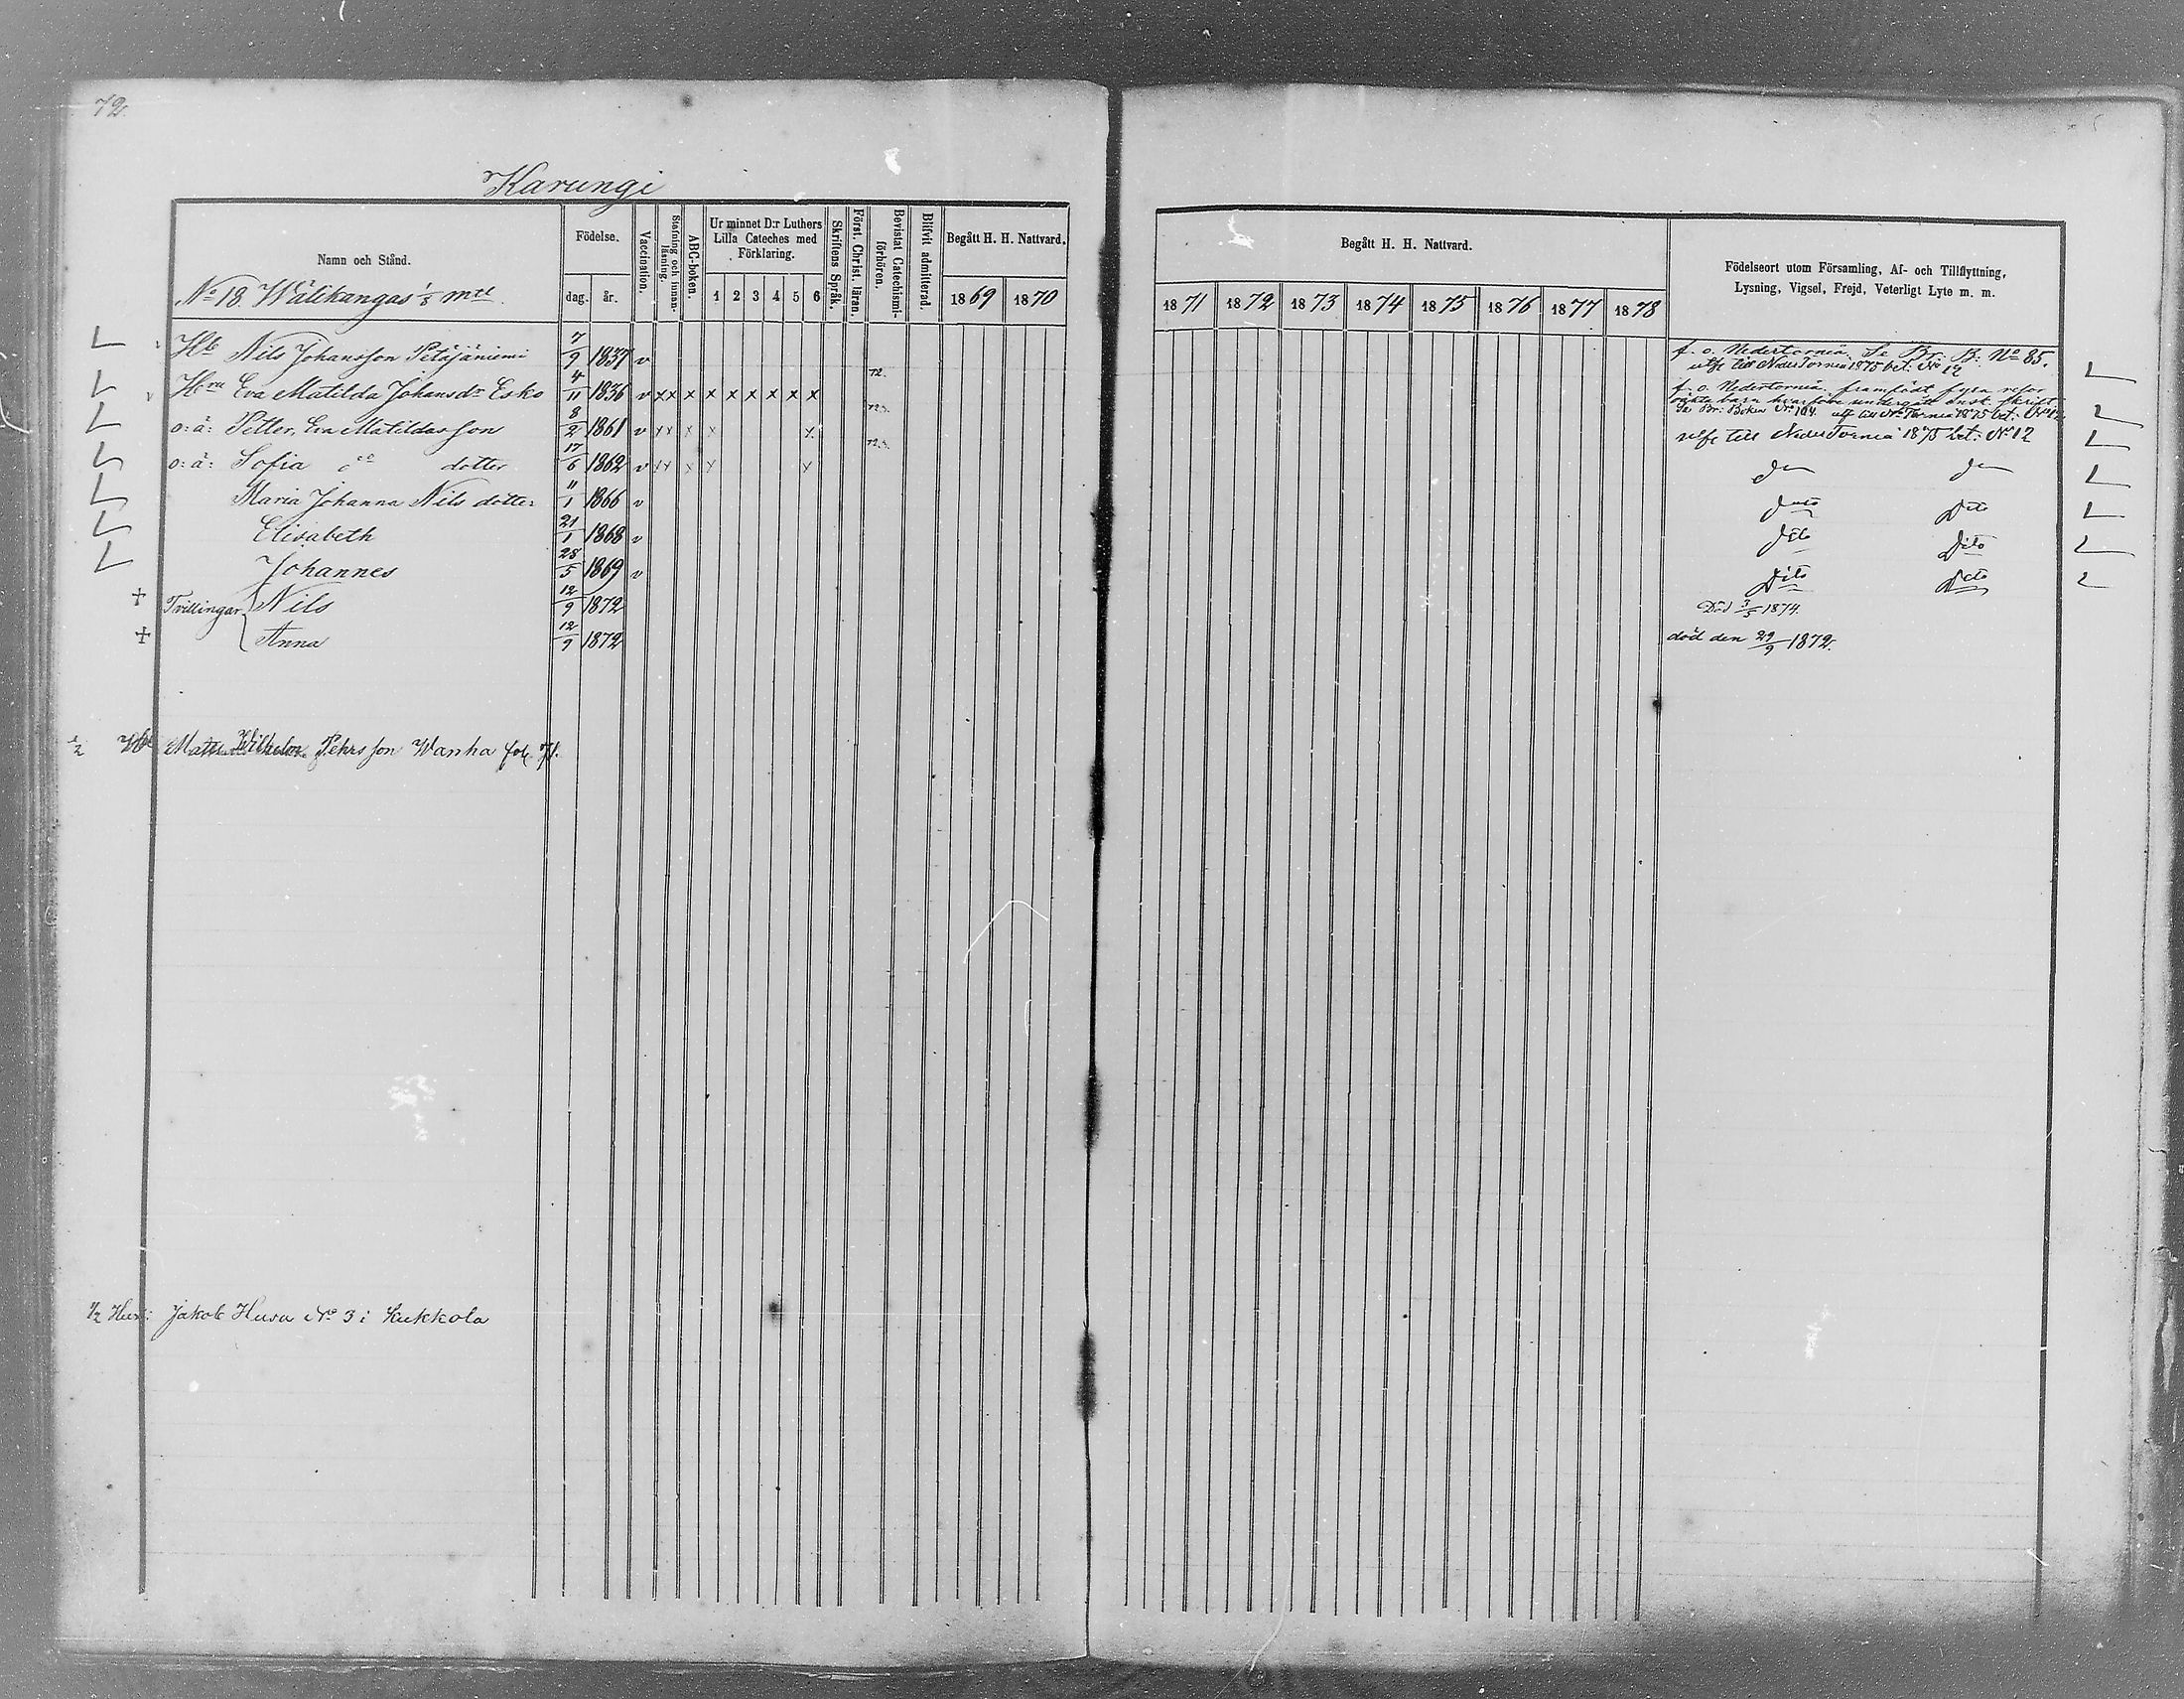 72.
Karungi
Namn och Stånd.
Födelse.
dag. år.
Vaccination.
Stafning och innan-läsning.
ABC-boken.
Ur minnet D:r Luthers
Lilla Cateches med
Förklaring.
1 2 3 4 5 6
Skriftens Språk.
Först. Christ. läran.
Bevistat Catechismi-förhören.
Blifvit admitterad.
Begått H. H. Nattvard.
1869 1870
Begått H. H. Nattvard.
1871 1872 1873 1874 1875 1876 1877 1878
Födelseort utom Församling, Af- och Tillflyttning,
Lysning, Vigsel, Frejd, Veterligt Lyte m. m.
No 18. Wälikangas 1/8 mtl
Hb Nils Johansson Petäjäniemi 7/9 1837 v f. o. Nedertorneå. Se Br: B: No 85.
utfl till NederTorneå 1875 bet: No 12
Hru Eva Matilda Johansdr Esko 4/11 1836 v x x x x x x x x x 72. f. o. Nedertorneå. framfödt fyra
oäkta barn hvarföre undergått ensk. skrift
Se Br: Boken No 104. utf till Nr Torneå 1875 bet: No 12
o: ä: Petter, Eva Matildas son 8/2 1861 v x x x x x 72. utfl till NederTorneå 1875 bet: No 12
o: ä: Sofia do dotter 17/6 1862 v x x x x x 72.
Maria Johanna Nils dotter 11/1 1866 v Dito Dito
Elisabeth 21/1 1868 v Dito Dito
Johannes 28/5 1869 v Dito Dito
+ Tvillingar Nils 12/9 1872 Död 3/5 1874.
+ Anna 12/9 1872 död den 29/9 1872.
1/2 Matts Wilhelm Pehrsson Wanha fol. 71.
1/2 Hus: Jakob Husa No 3 i Kukkola